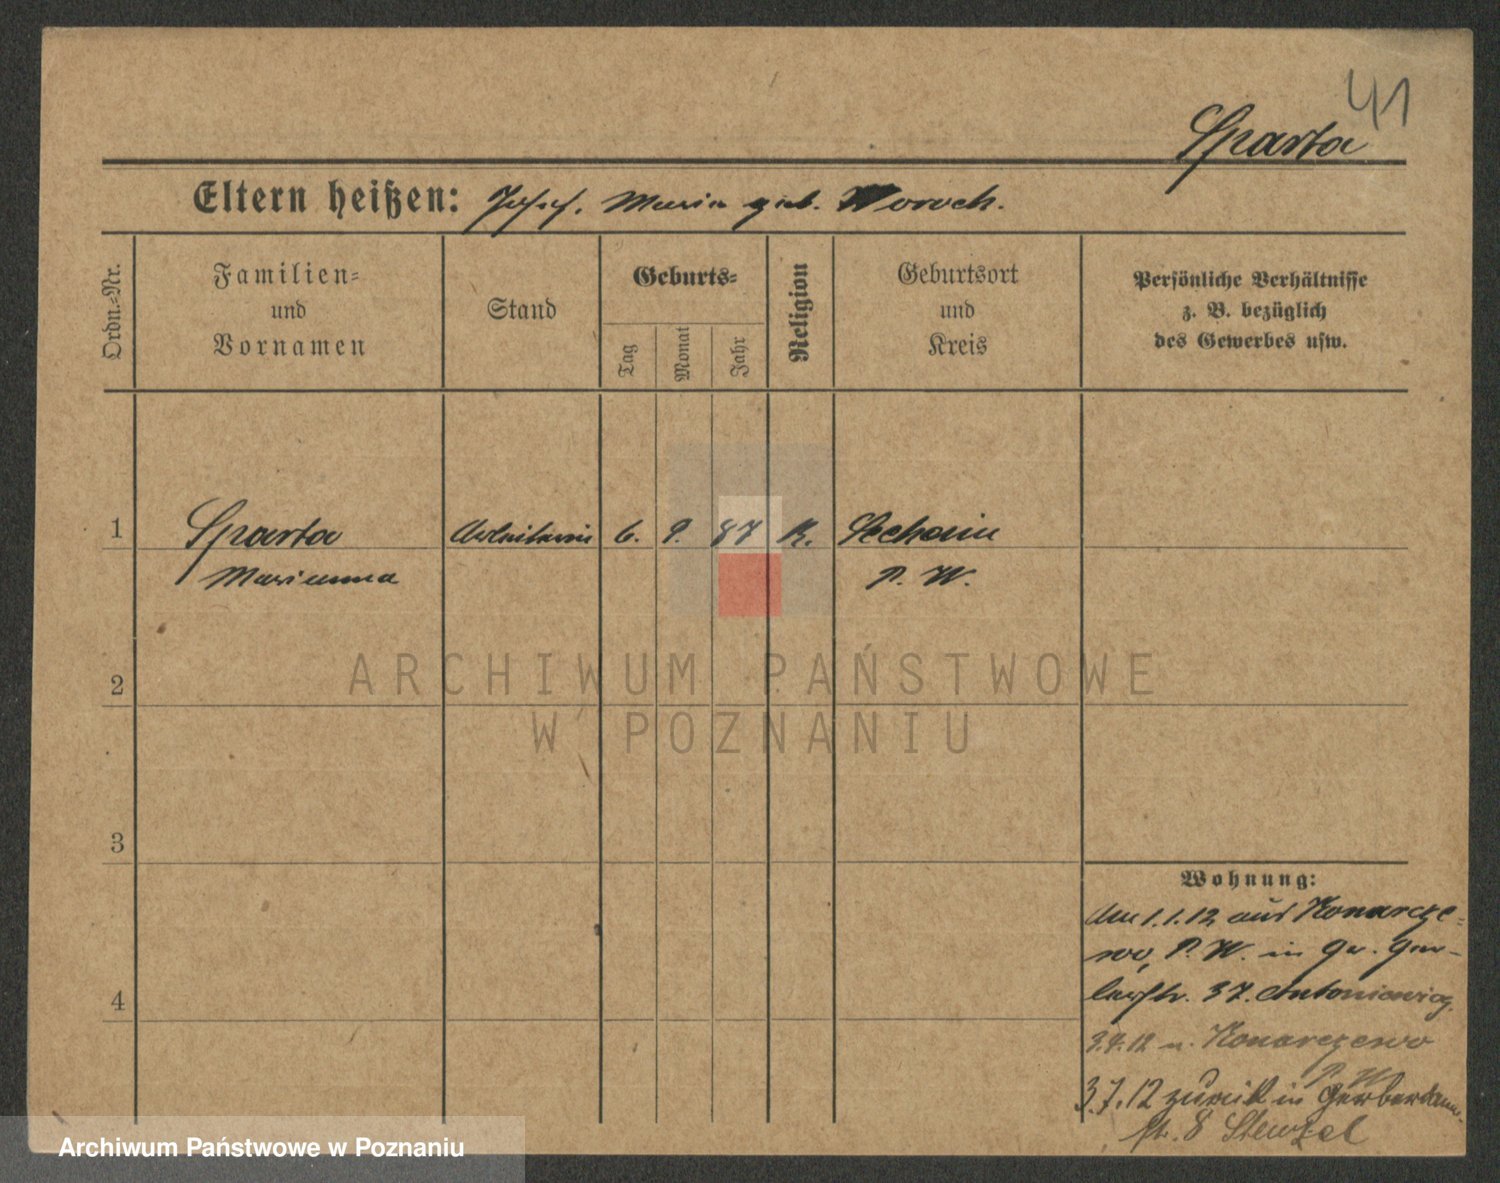 41
Sparta
Eltern heißen: Josef. Maria geb. Woroch.
Ordn.=Nr.
Familien=
und
Vornamen
Stand
Geburts=
Tag
Monat
Jahr
Religion
Geburtsort
und
Kreis
Persönliche Verhältnisse
z. B. bezüglich
des Gewerbes usw.
1
Sparta
Marianna
Arbeiterin
6.
87
K.
P. W.
2
3
4
Wohnung:
Am 1.1.12 aus Konarcze=
wo, P. W. in Gr. Ger-
berstr. 37. Antoniewicz.
3.4.12 n. Konarczewo
P. W.
3.7.12 zurück in Gerberdamm
str. 8 Stenzel
ARCHIWUM PAŃSTWOWE
W POZNANIU
Archiwum Państwowe w Poznaniu